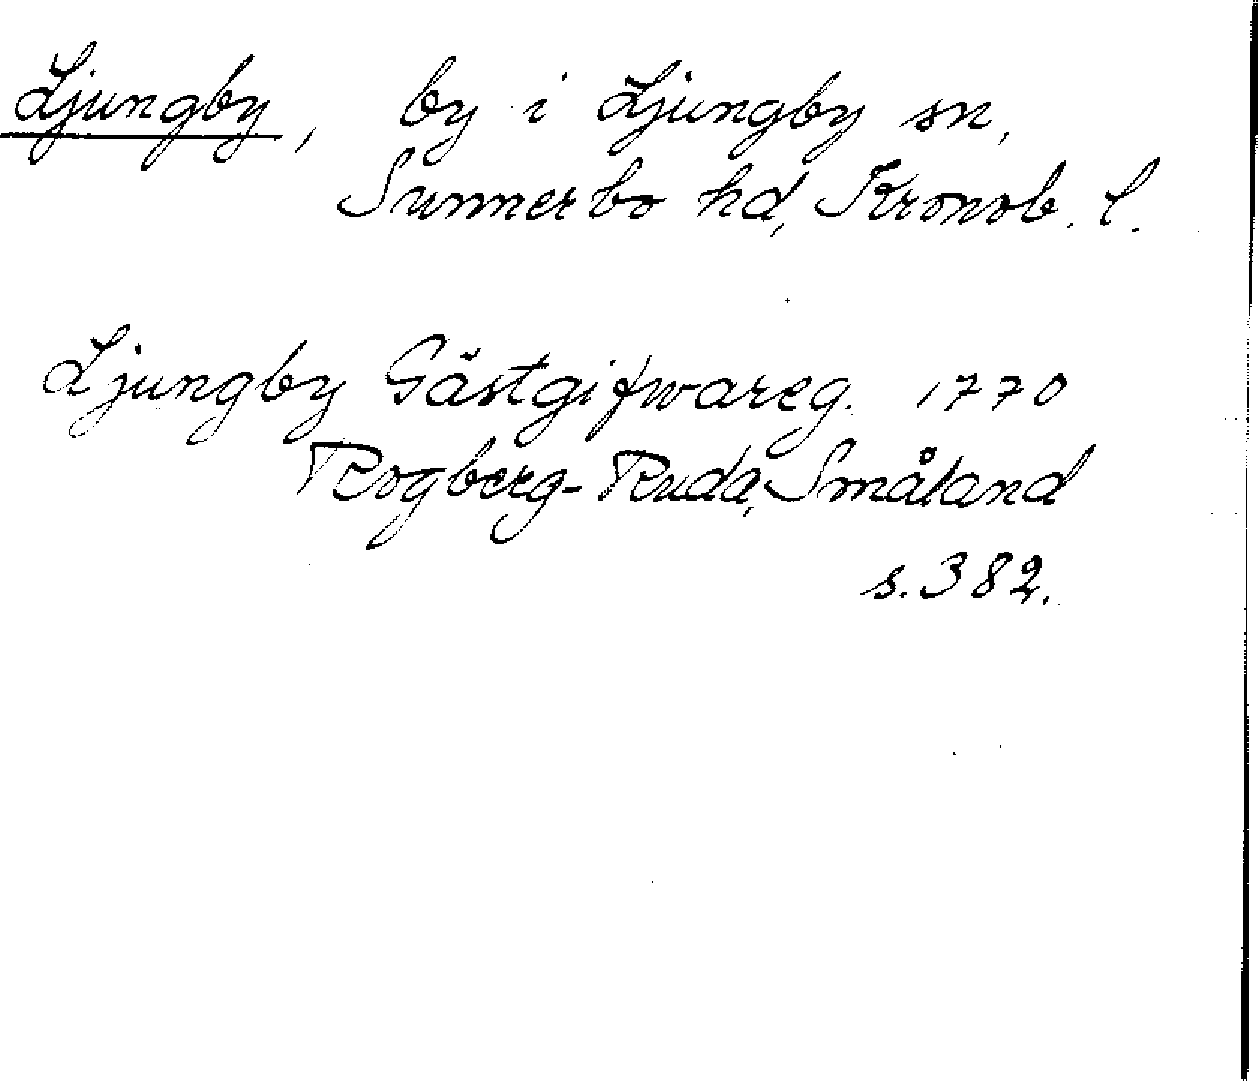 Ljungby, by i Ljungby sn,
Sunnerbo hd, Kronob. l.
Ljungby Gästgifwareg. 1770
Rogberg-Ruda, Småland
s. 382.